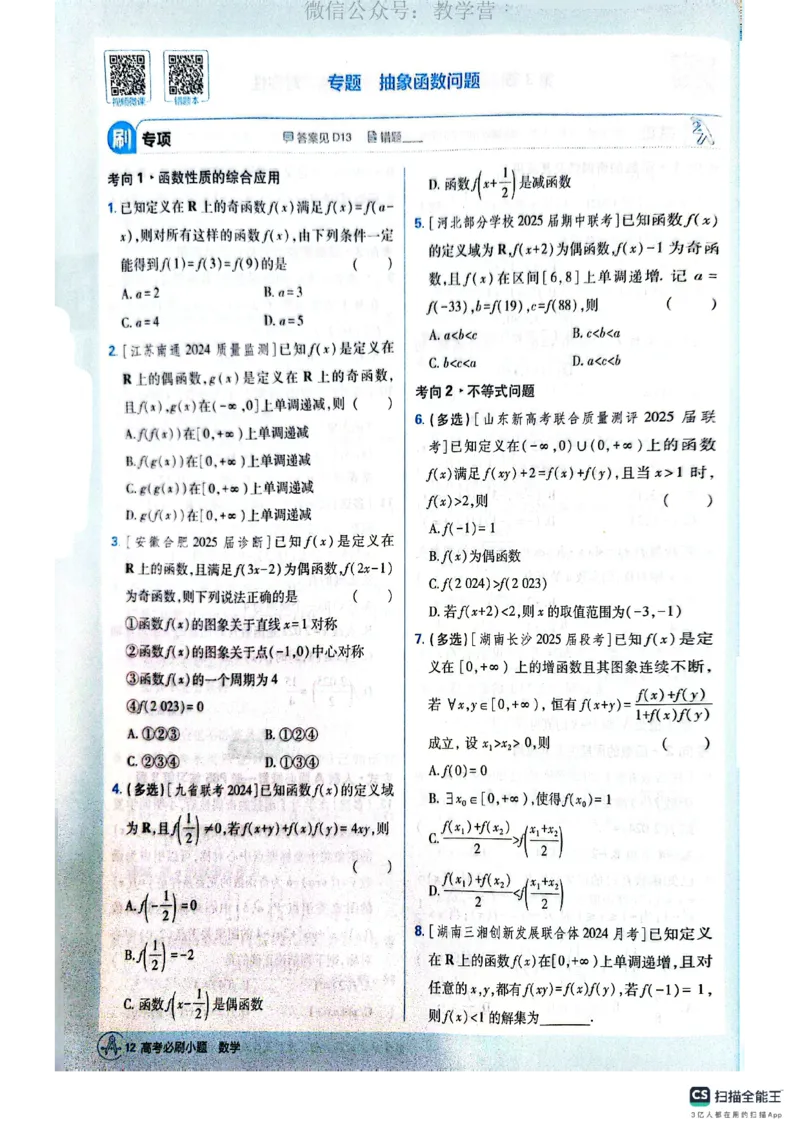 微信公众号：教学营
视频微课
错题本
专题 抽象函数问题
刷 专项
答案见 D13 错题
考向 1 · 函数性质的综合应用
1. 已知定义在 R 上的奇函数 f(x) 满足 f(x)=f(a-
x),则对所有这样的函数 f(x),由下列条件一定
能得到 f(1)=f(3)=f(9)的是 ( )
A. a=2 B. a=3
C. a=4 D. a=5
2. [江苏南通 2024 质量监测]已知 f(x)是定义在
R 上的偶函数,g(x)是定义在 R 上的奇函数,
且 f(x),g(x)在(-∞,0]上单调递减,则 ( )
A. f(f(x))在[0,+∞)上单调递减
B. f(g(x))在[0,+∞)上单调递减
C. g(g(x))在[0,+∞)上单调递减
D. g(f(x))在[0,+∞)上单调递减
3. [安徽合肥 2025 届诊断]已知 f(x)是定义在
R 上的函数,且满足 f(3x-2)为偶函数,f(2x-1)
为奇函数,则下列说法正确的是 ( )
①函数 f(x)的图象关于直线 x=1 对称
②函数 f(x)的图象关于点(-1,0)中心对称
③函数 f(x)的一个周期为 4
④f(2 023)=0
A. ①②③ B. ①②④
C. ②③④ D. ①③④
4. (多选)[九省联考 2024]已知函数 f(x)的定义域
为 R,且 f(1/2)≠0,若 f(x+y)+f(x)f(y)=4xy,则
( )
A. f(-1/2)=0
B. f(1/2)=-2
C. 函数 f(x-1/2)是偶函数
D. 函数 f(x+1/2)是减函数
5. [河北部分学校 2025 届期中联考]已知函数 f(x)
的定义域为 R,f(x+2)为偶函数,f(x)-1 为奇函
数,且 f(x)在区间[6,8]上单调递增. 记 a=
f(-33),b=f(19),c=f(88),则 ( )
A. a<b<c B. c<b<a
C. b<c<a D. a<c<b
考向 2 · 不等式问题
6. (多选)[山东新高考联合质量测评 2025 届联
考]已知定义在(-∞,0)∪(0,+∞)上的函数
f(x)满足 f(xy)+2=f(x)+f(y),且当 x>1 时,
f(x)>2,则 ( )
A. f(-1)=1
B. f(x)为偶函数
C. f(2 024)>f(2 023)
D. 若 f(x+2)<2,则 x 的取值范围为(-3,-1)
7. (多选)[湖南长沙 2025 届段考]已知 f(x)是定
义在[0,+∞)上的增函数且其图象连续不断,
若 ∀x,y∈[0,+∞),恒有 f(x+y)=(f(x)+f(y))/(1+f(x)f(y))
成立, 设 x₁>x₂>0,则 ( )
A. f(0)=0
B. ∃x₀∈[0,+∞),使得 f(x₀)=1
C. (f(x₁)+f(x₂))/2>f((x₁+x₂)/2)
D. (f(x₁)+f(x₂))/2<f((x₁+x₂)/2)
8. [湖南三湘创新发展联合体 2024 月考]已知定义
在 R 上的函数 f(x)在[0,+∞)上单调递增,且对
任意的 x,y,都有 f(xy)=f(x)f(y),若 f(-1)=1,
则 f(x)<1 的解集为______.
12 高考必刷小题 数学
CS 扫描全能王
3亿人都在用的扫描App